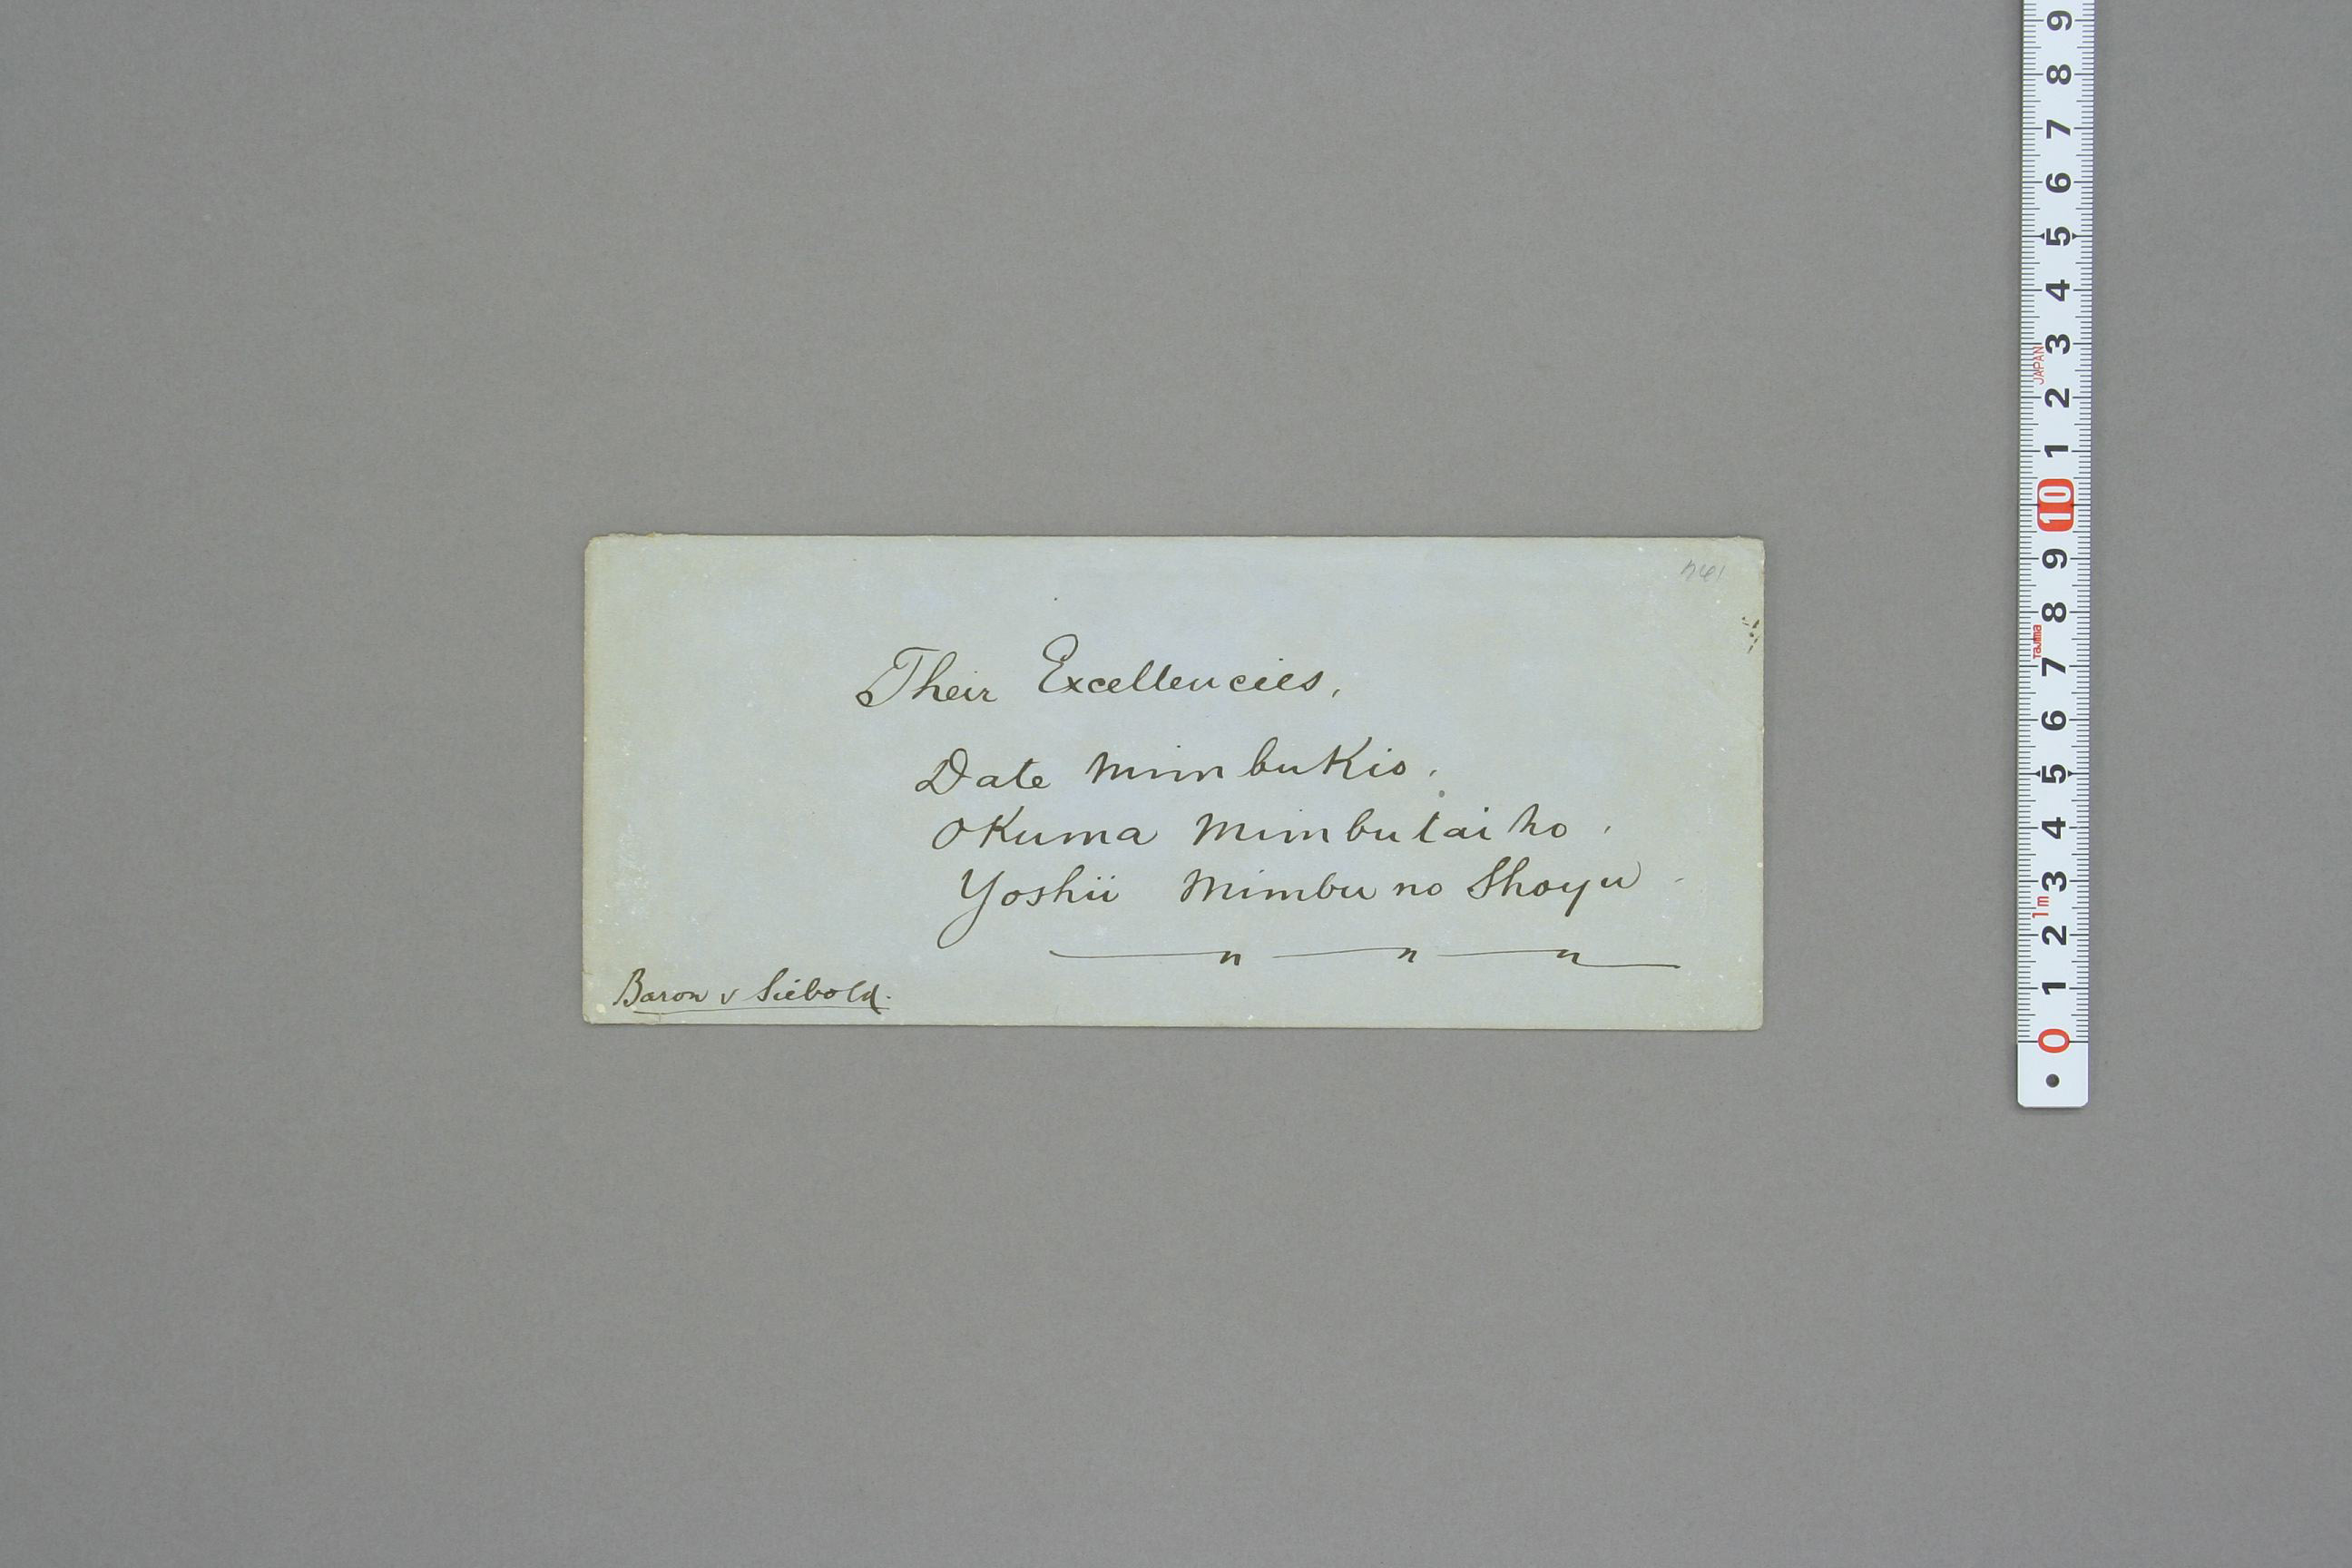 Their Excellencies,
Date MimbuKio.
OKuma Mimbutaiho.
Yoshii Mimbu no Shoyu
Baron v Siebold.
9
8
7
6
5
4
3
JAPAN
2
1
10
9
8
Tajima
7
6
5
4
3
1m
2
1
0